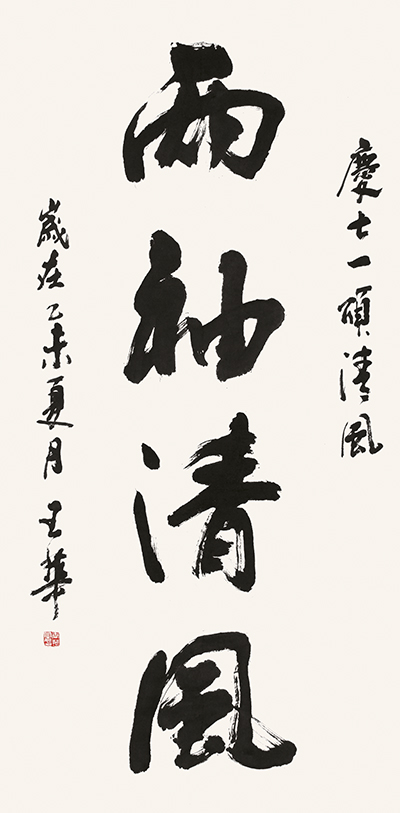 慶七一頌清風
兩袖清風
歲在乙未夏月 王華